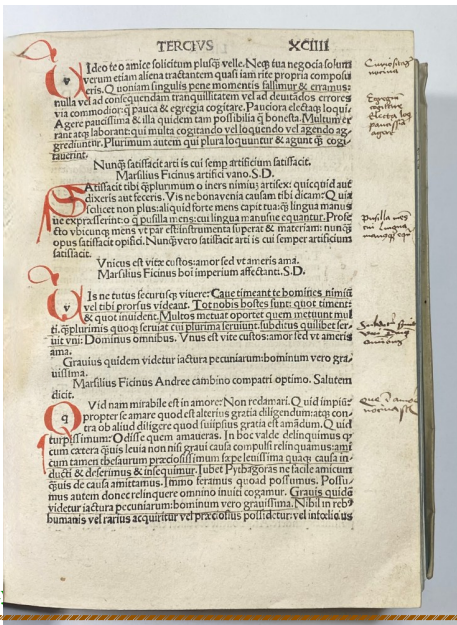 TERCIVS XCIIII
Ideo te o amice solicitum plusq̃ velle. Neq; tua negocia solum
verum etiam aliena tractantem quasi iam rite propria composu
eris. Quoniam singulis pene momentis fallimur & erramus:
nulla vel ad consequendam tranquillitatem vel ad deuitādos errores
via commodior: q̃ pauca & egregia cogitare. Pauciora electaq; loqui.
Agere paucissima & illa quidem tam possibilia q̃ honesta. Multum er
rant atq; laborant: qui multa cogitando vel loquendo vel agendo ag
grediuntur. Plurimum autem qui plura loquuntur & agunt q̃ cogi
tauerint.
Nunq̃ satisfacit arti is cui semp artificium satisfacit.
Marsilius Ficinus artifici vano. S.D.
Satisfacit tibi q̃plurimum o iners nimiū; artifex: quicquid aut
dixeris aut feceris. Vis ne bonauenia causam tibi dicam: Quia
scilicet non plus: aliquid forte mens capit tua: q̃ lingua manus
ue expresserint: o q̃ pusilla mens: cui lingua manusue equantur. Profe
cto vbicunq; mens vt par est instrumenta superat & materiam: nunq̃
opus satisfacit opifici. Nunq̃ vero satisfacit arti is cui semper artificium
satisfacit.
Vnicus est vitæ custos: amor sed vt ameris ama.
Marsilius Ficinus boi imperium affectanti. S.D.
Vis ne tutus securusq; viuere: Caue timeant te homines nimiū
vel tibi prorsus videant. Tot nobis hostes sunt: quot timent:
& quot inuident. Multos metuat oportet quem metuunt mul
ti. q̃plurimis quoq; seruiat cui plurima seruiunt. subditus quilibet ser
uit vni: Dominus omnibus. Vnus est vite custos: amor sed vt ameris
ama.
Grauius quidem videtur iactura pecuniarum: hominum vero gra
uissima.
Marsilius Ficinus Andree cambino compatri optimo. Salutem
dicit.
Quid nam mirabile est in amore: Non redamari. Quid impiū:
propter se amare quod est alterius gratia diligendum: atq; con
tra ob aliud diligere quod suiipsius gratia est amādum. Quid
turpissimum: Odisse quem amaueras. In hoc valde delinquimus q̃
cum cætera q̃uis leuia non nisi graui causa compulsi relinquamus: ami
cum tamen thesaurum præciosissimum sæpe leuissima quaq; causa in
ducti & deserimus & insequimur. Iubet Pythagoras ne facile amicum
q̃uis de causa amittamus. Immo feramus quoad possumus. Possu
mus autem donec relinquere omnino inuiti cogamur. Grauis quidē
videtur iactura pecuniarum: hominum vero grauissima. Nihil in reb⁹
humanis vel rarius acquiritur vel præciosius possidetur: vel infœlicius
Curiositas
nociua
Egregia
cogitare
electa loq
paucissīa
agere
Pusilla mēs
cui lingua
manusq; equ